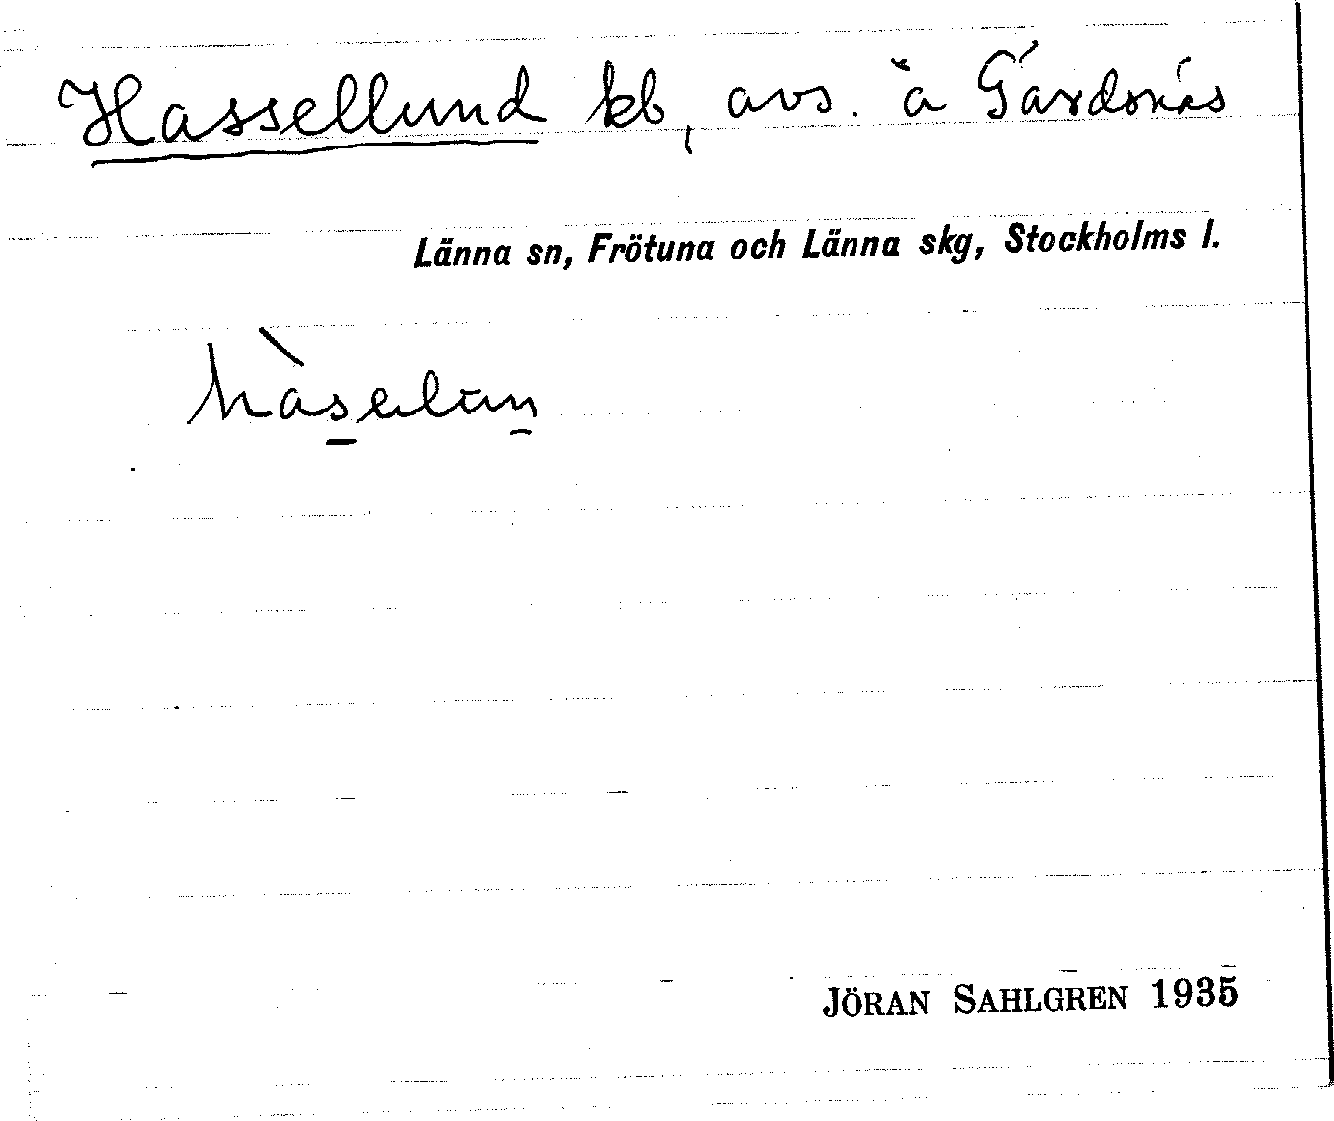 Hassellund kb, avs. å Gärdsnäs
Länna sn, Frötuna och Länna skg, Stockholms l.
hàsəlun
JÖRAN SAHLGREN 1935